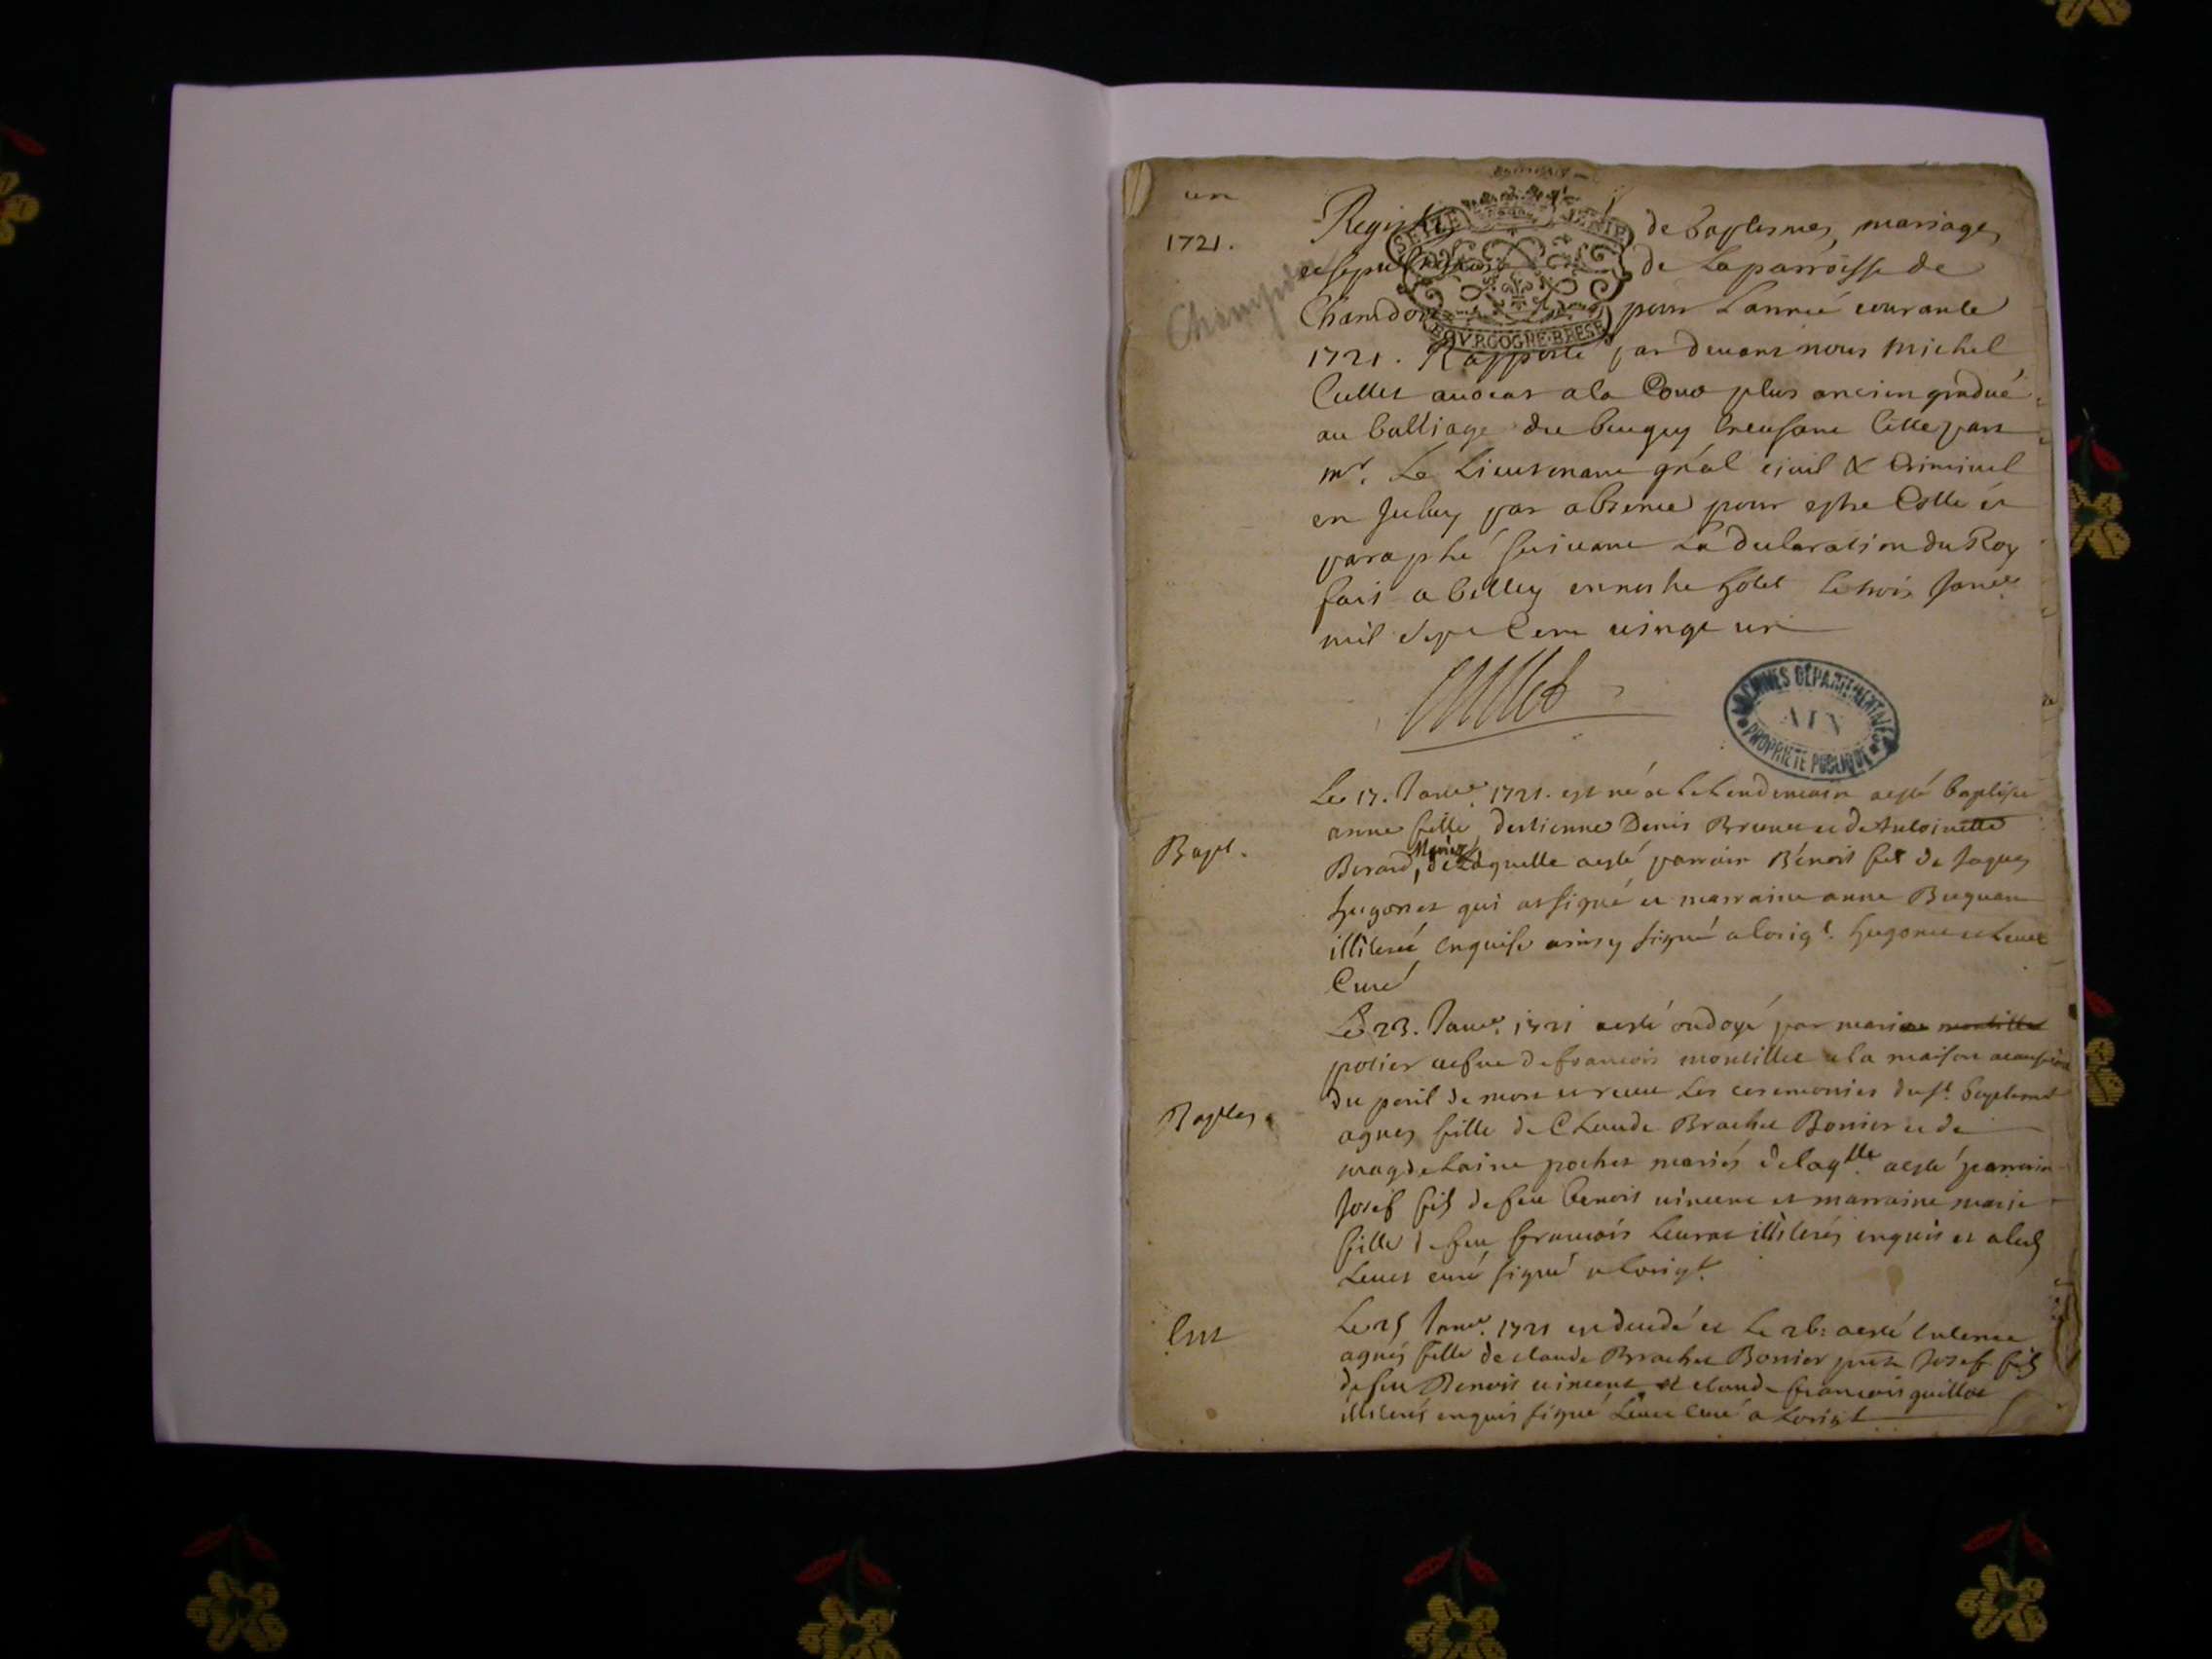 un
1721.
Champdor
SEIZE DENIE
BOVRGOGNE·BRESE
Regis de baptesmes, mariages
et sepul de La parroisse de
Chamdor pour L'année courante
1721. Rapporté par devant nous Michel
Cullet avocat a la Cour plus ancien gradué
au balliage du beugey
mr. Le Lieutenant gnal civil & Criminel
en par absence pour estre Cotte et
paraphé suivant La declaration du Roy
fait a belley en nostre hotel Le trois Janer
mil sept Cent vingt un
Cullet
ARCHIVES DÉPARTEMENTALES
AIN
PROPRIÉTÉ PUBLIQUE
Bapt.
Le 17. Janer. 1721. est né et le Lendemain a esté baptisée
anne fille d'estienne Denis Brunet et de Antoinette
Berard, Mariez de Laquelle a esté parrain Bénoit fils de Jaques
hugonet qui at signé et marraine anne
illiterée enquise ainsy signé a lorigl. hugonet et
Curé
Baptes
Le 23. Janer. 1721 a esté ondoyé par marie
potier vefve de francois montillet a la maison a cause
du peril de mort et receu Les ceremonies du st. baptesme
agnes fille de CLaude Brachet Bonier et de
magdelaine pochet mariés de laqlle a esté parrain
Josef fils de feu benoit vincent et marraine marie
fille de feu francois illiterés enquis et
curé signé a lorigl.
Ent
Le 25 Janer. 1721 est decedé et Le 26: a esté enterrée
agnés fille de claude Brachet Bonier Josef fils
de feu Benoit vincent et claude francois guillot
illiterés enquis signé Curé a Lorigl